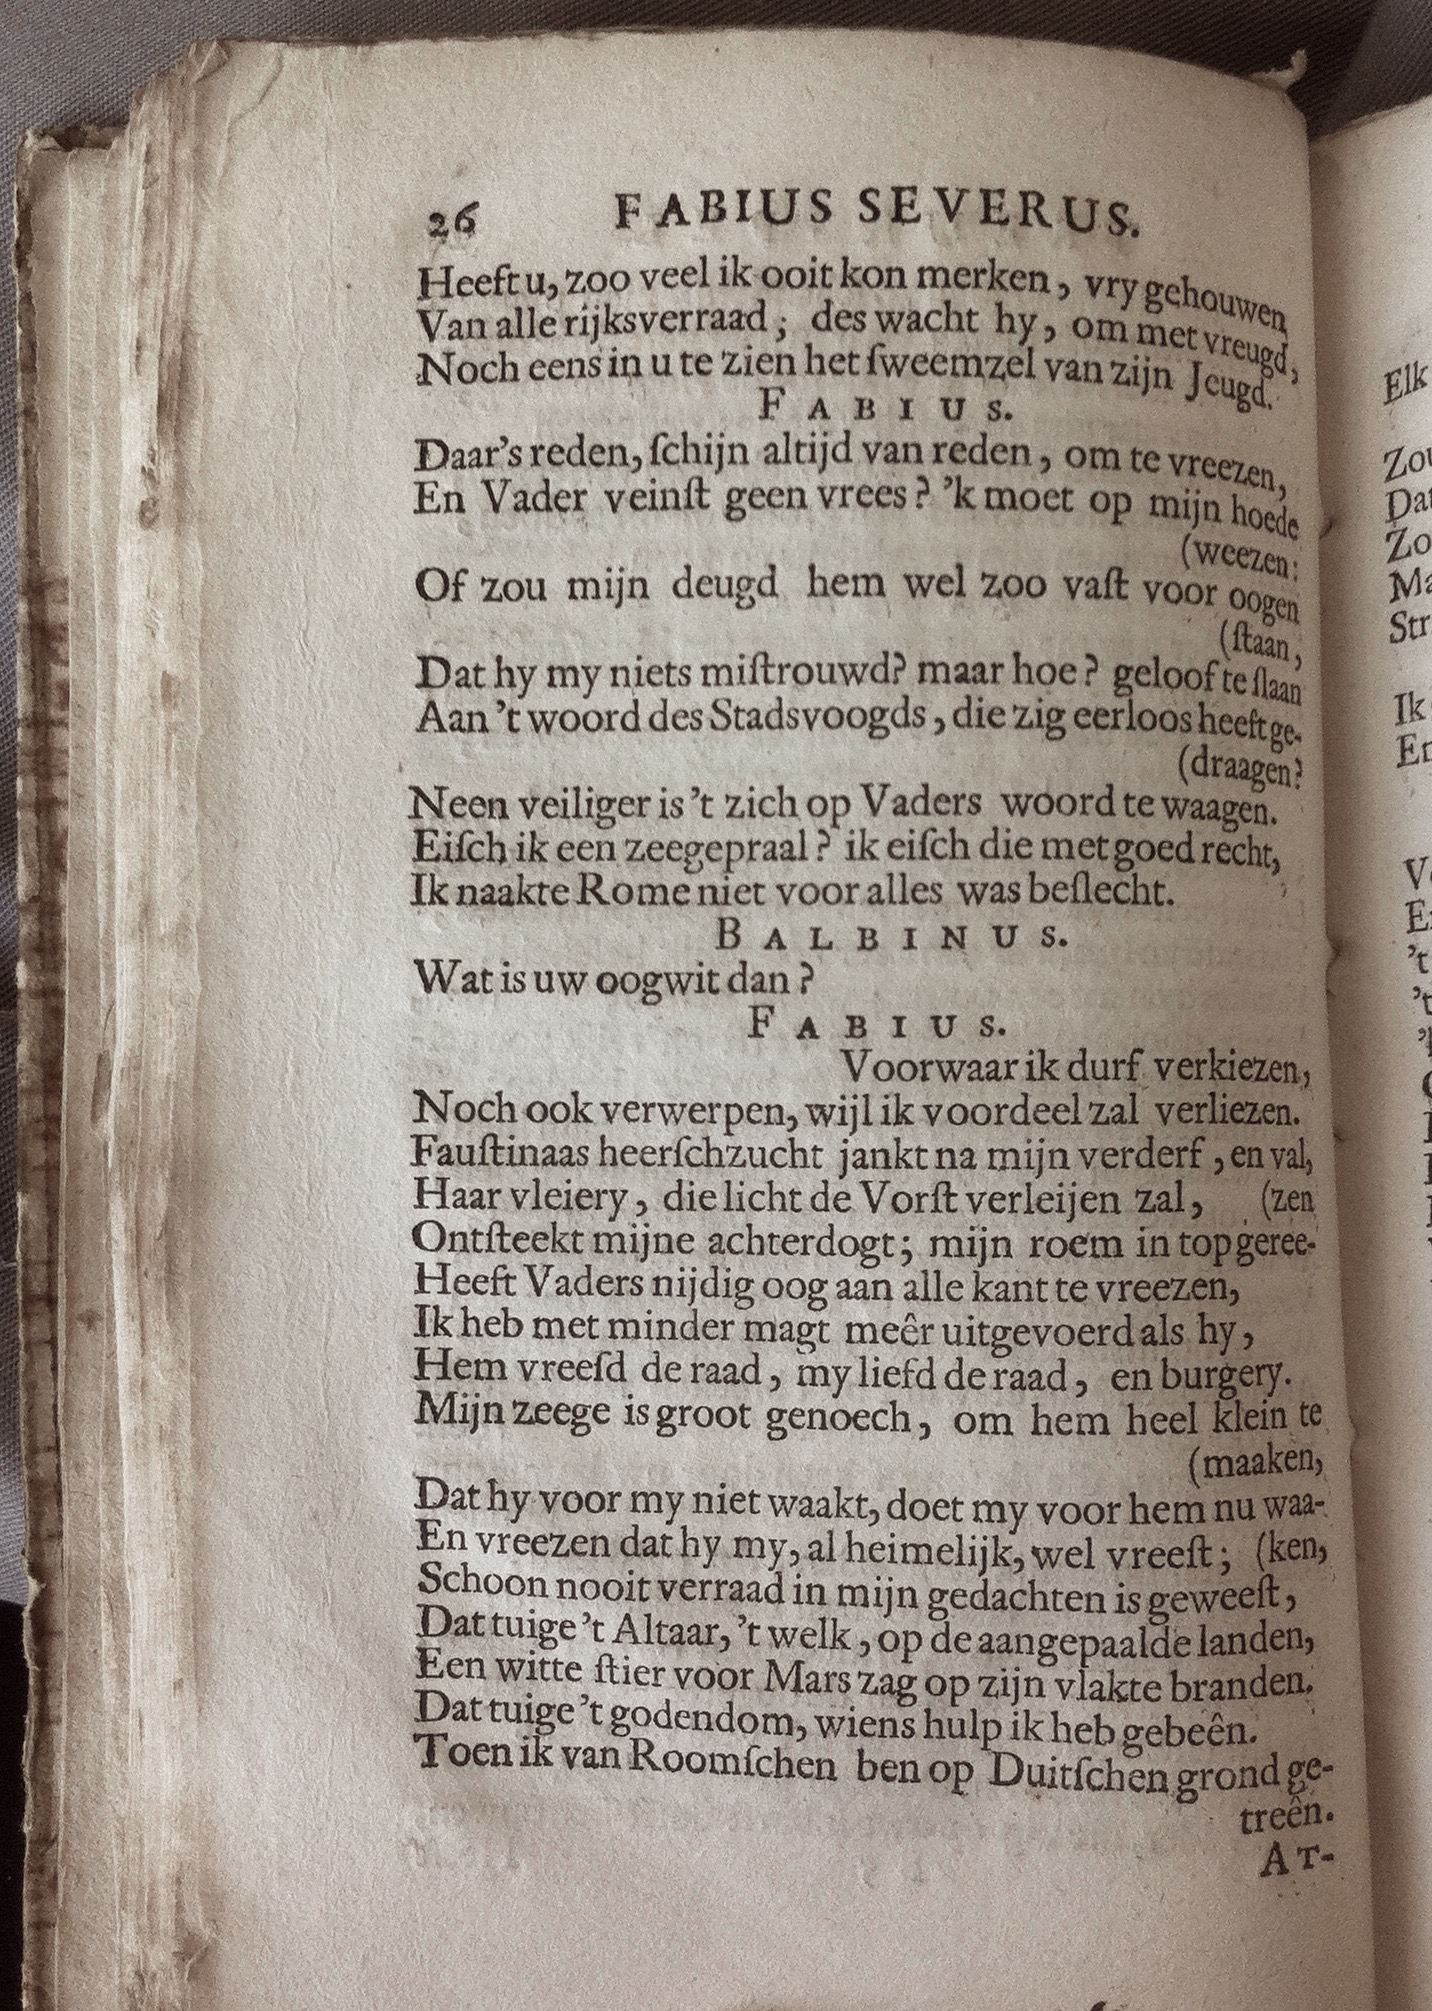 26 FABIUS SEVERUS.
Heeft u, zoo veel ik ooit kon merken, vry gehouwen
Van alle rijksverraad; des wacht hy, om met vreugd,
Noch eens in u te zien het ſweemzel van zijn Jeugd.
FABIUS.
Daar's reden, ſchijn altijd van reden, om te vreezen,
En Vader veinſt geen vrees? 'k moet op mijn hoede
(weezen:
Of zou mijn deugd hem wel zoo vaſt voor oogen
(ſtaan,
Dat hy my niets miſtrouwd? maar hoe? geloof te ſlaan
Aan 't woord des Stadsvoogds, die zig eerloos heeft ge-
(draagen?
Neen veiliger is 't zich op Vaders woord te waagen.
Eiſch ik een zeegepraal? ik eiſch die met goed recht,
Ik naakte Rome niet voor alles was beſlecht.
BALBINUS.
Wat is uw oogwit dan?
FABIUS.
Voorwaar ik durf verkiezen,
Noch ook verwerpen, wijl ik voordeel zal verliezen.
Fauſtinaas heerſchzucht jankt na mijn verderf, en val,
Haar vleiery, die licht de Vorſt verleijen zal, (zen
Ontſteekt mijne achterdogt; mijn roem in top geree-
Heeft Vaders nijdig oog aan alle kant te vreezen,
Ik heb met minder magt meêr uitgevoerd als hy,
Hem vreeſd de raad, my liefd de raad, en burgery.
Mijn zeege is groot genoech, om hem heel klein te
(maaken,
Dat hy voor my niet waakt, doet my voor hem nu waa-
En vreezen dat hy my, al heimelijk, wel vreeſt; (ken,
Schoon nooit verraad in mijn gedachten is geweeſt,
Dat tuige 't Altaar, 't welk, op de aangepaalde landen,
Een witte ſtier voor Mars zag op zijn vlakte branden.
Dat tuige 't godendom, wiens hulp ik heb gebeên.
Toen ik van Roomſchen ben op Duitſchen grond ge-
treên.
AT-
Elk
Ik
't
't